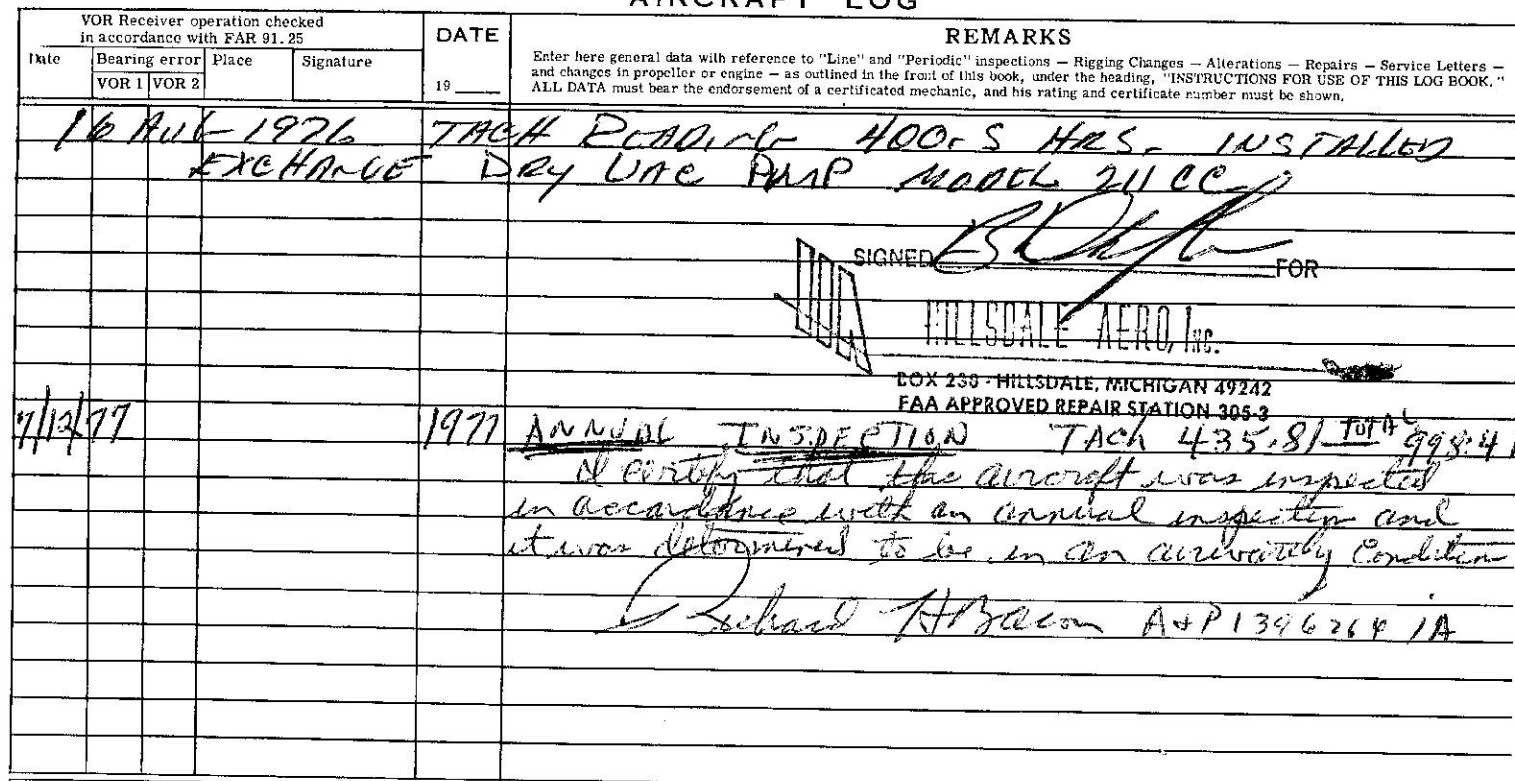 AIRCRAFT LOG
VOR Receiver operation checked
in accordance with FAR 91.25
Date
Bearing error
Place
Signature
VOR 1
VOR 2
DATE
19
REMARKS
Enter here general data with reference to "Line" and "Periodic" inspections — Rigging Changes — Alterations — Repairs — Service Letters —
and changes in propeller or engine — as outlined in the front of this book, under the heading, "INSTRUCTIONS FOR USE OF THIS LOG BOOK."
ALL DATA must bear the endorsement of a certificated mechanic, and his rating and certificate number must be shown.
16 AUG 1976 TACH READING 400.5 HRS. INSTALLED
EXCHANGE DRY VAC PUMP MODEL 211CC
SIGNED FOR
HILLSDALE AERO, Inc.
BOX 238 - HILLSDALE, MICHIGAN 49242
FAA APPROVED REPAIR STATION 305-3
7/12/77 1977 ANNUAL INSPECTION TACH 435.81 TOTAL 998.41
I certify that the aircraft was inspected
in accordance with an annual inspection and
it was determined to be in an airworthy Condition
Richard H Bacon A+P 1396264 IA